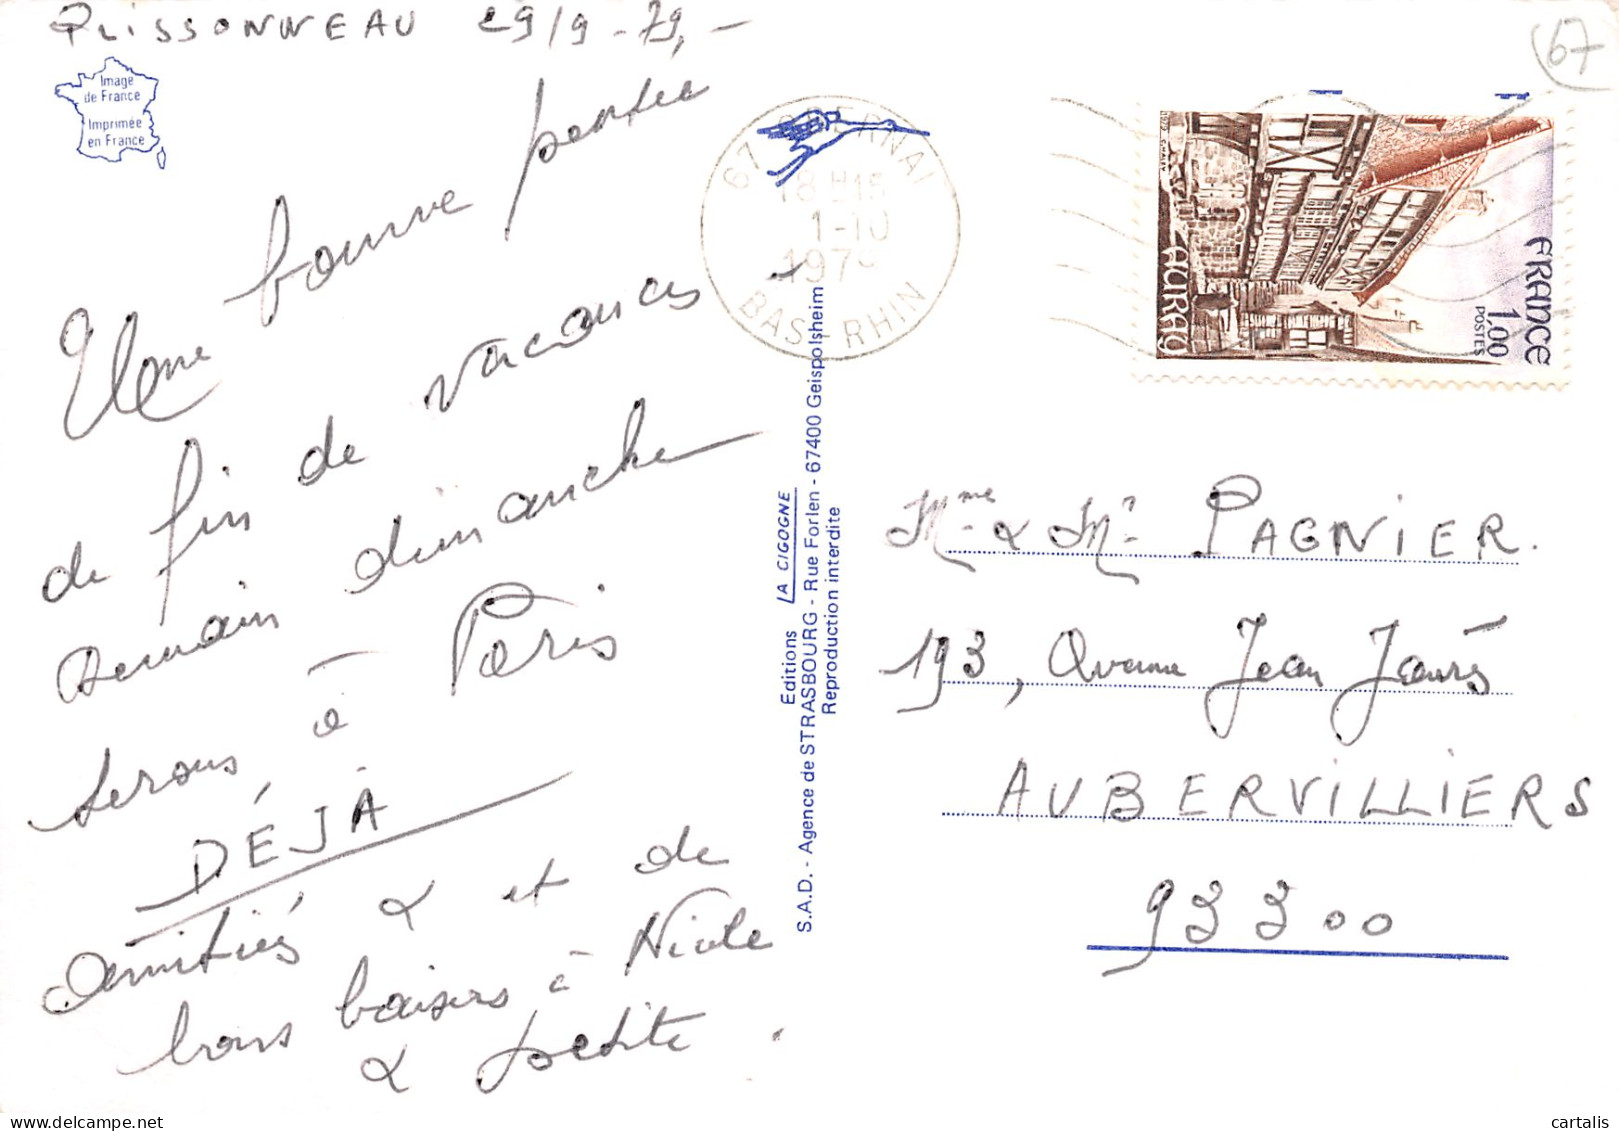 PLISSONNEAU 29/9-79,-
Image
de France
Imprimée
en France
Une bonne pensée
de fin de vacances -
Demain dimanche
serons à Paris
DÉJÀ
amitiés & et de
bons baisers à Nicole
& petite.
67 OBERNAI
18 H15
1-10
1979
BAS RHIN
Editions LA CIGOGNE
S.A.D. - Agence de STRASBOURG - Rue Forlen - 67400 Geispolsheim
Reproduction interdite
67
1979 C.HALEY
AURAY
FRANCE
1,00
POSTES
Mme & Mr PAGNIER.
193, Avenue Jean Jaurès
AUBERVILLIERS
93300
cartalis | delcampe.net